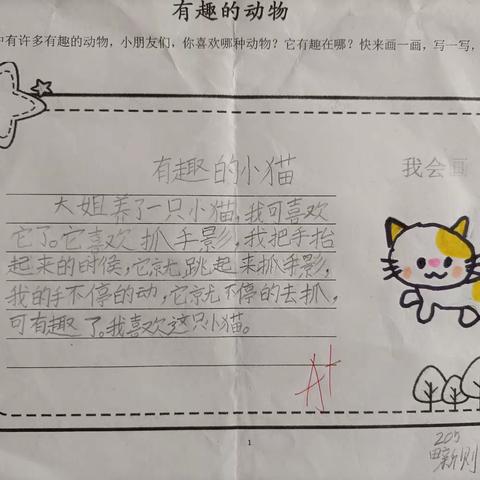 有趣的动物
中有许多有趣的动物，小朋友们，你喜欢哪种动物？它有趣在哪？快来画一画，写一写，
有趣的小猫
我会画
大姐养了一只小猫，我可喜欢
它了。它喜欢抓手影，我把手抬
起来的时候，它就跳起来抓手影，
我的手不停的动，它就不停的去抓，
可有趣了。我喜欢这只小猫。
A+
1
205